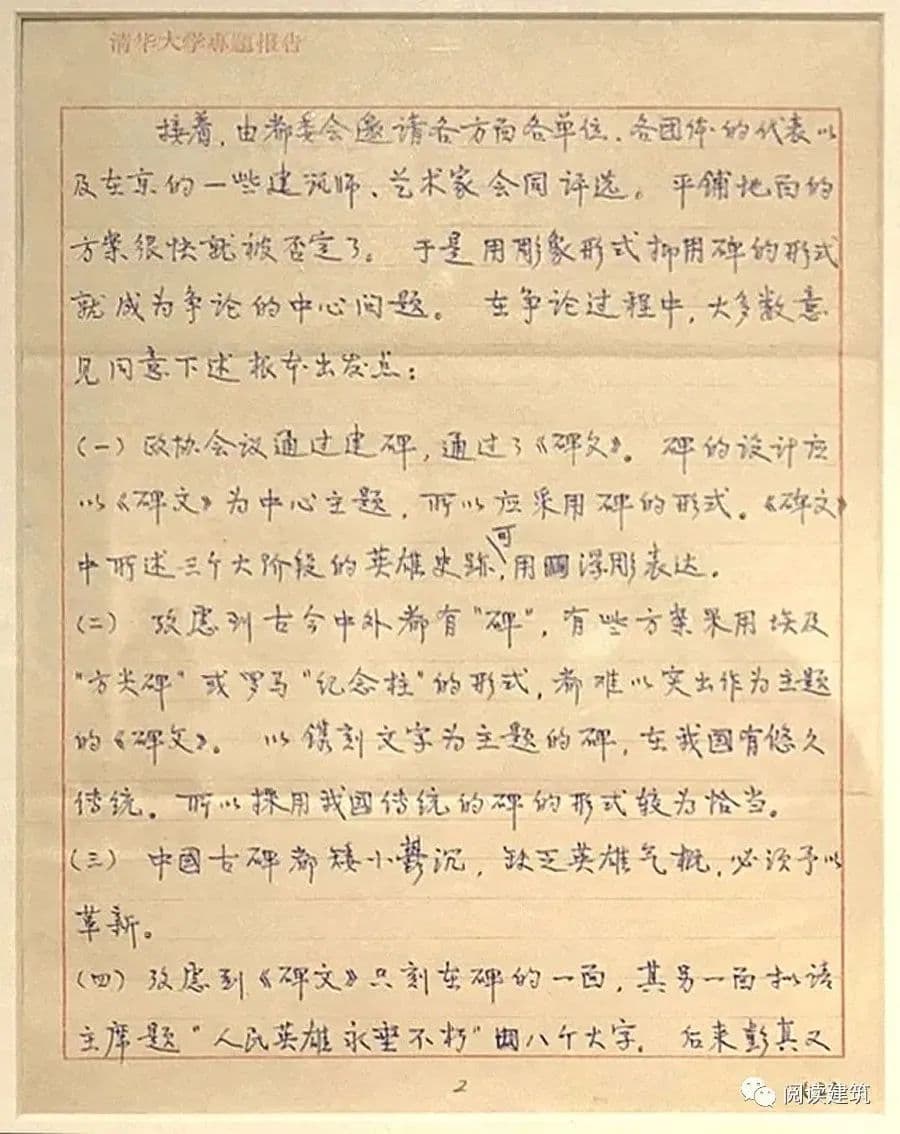 清华大学專題报告
接着，由都委会邀请各方面各单位、各团体的代表以
及在京的一些建筑师、艺术家会同评选。平铺地面的
方案很快就被否定了。于是用彫象形式抑用碑的形式
就成为争论的中心问题。在争论过程中，大多数意
见同意下述根本出发点：
(一) 政协会议通过建碑，通过了《碑文》。碑的设计应
以《碑文》为中心主题，所以应采用碑的形式。《碑文》
中所述三个大阶段的英雄史跡，可用浮彫表达。
(二) 攷慮到古今中外都有"碑"，有些方案采用埃及
"方尖碑"或罗马"纪念柱"的形式，都难以突出作为主题
的《碑文》。以镌刻文字为主题的碑，在我國有悠久
传统。所以採用我國传统的碑的形式较为恰当。
(三) 中國古碑都矮小鬱沉，缺乏英雄气概，必须予以
革新。
(四) 攷慮到《碑文》只刻在碑的一面，其另一面拟请
主席题"人民英雄永垂不朽"八个大字。后来彭真又
2
阅读建筑